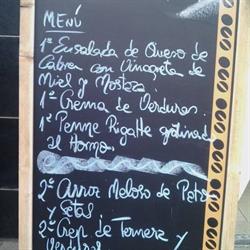 MENÚ
1º Ensalada de Queso de
Cabra con Vinagreta de
Miel y Mostaza
1º Crema de Verduras
1º Penne Rigatte gratinad
al Horno
2º Arroz Meloso de
y Setas
2º Crep de Ternera y
Verduras